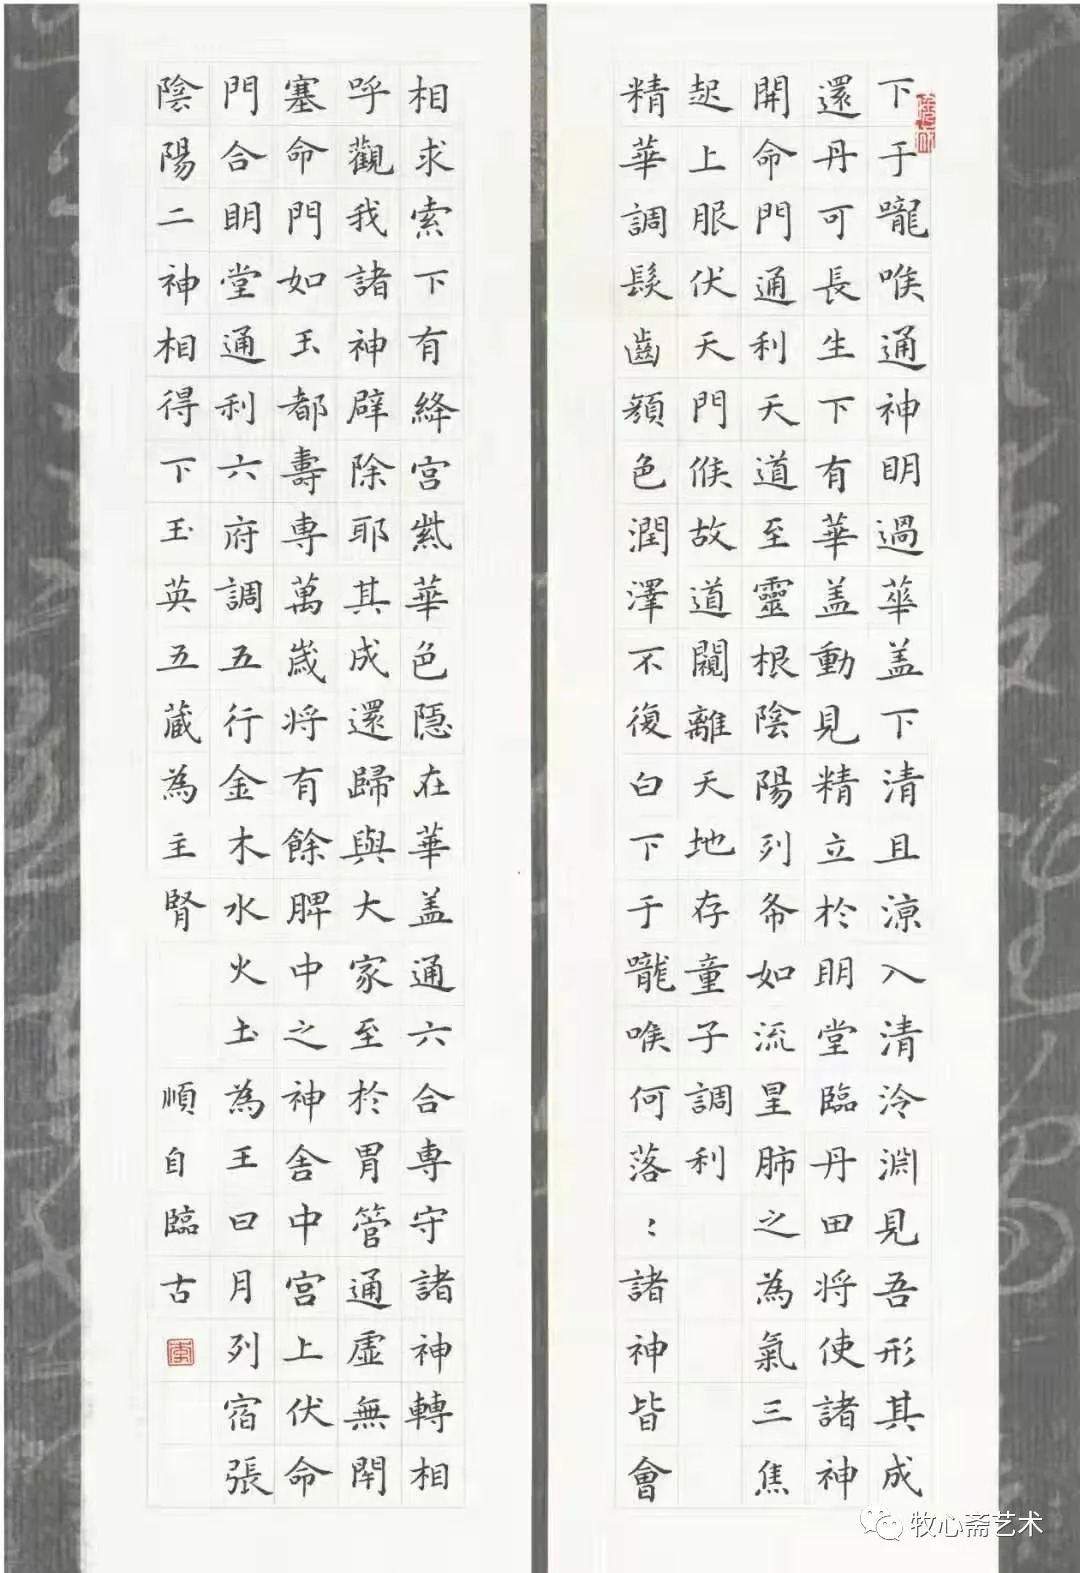 下于嚨喉通神明過華盖下清且涼入清泠淵見吾形其成
還丹可長生下有華盖動見精立於明堂臨丹田将使諸神
開命門通利天道至靈根陰陽列布如流星肺之為氣三焦
起上服伏天門候故道闚離天地存童子調利
精華調髮齒顏色潤澤不復白下于嚨喉何落〻諸神皆會
相求索下有絳宫紫華色隱在華盖通六合専守諸神轉相
呼觀我諸神辟除耶其成還歸與大家至於胃管通虛無閇
塞命門如玉都壽専萬歲将有餘脾中之神舍中宫上伏命
門合明堂通利六府調五行金木水火土為王日月列宿張
陰陽二神相得下玉英五藏為主腎
順自臨古
牧心斋艺术